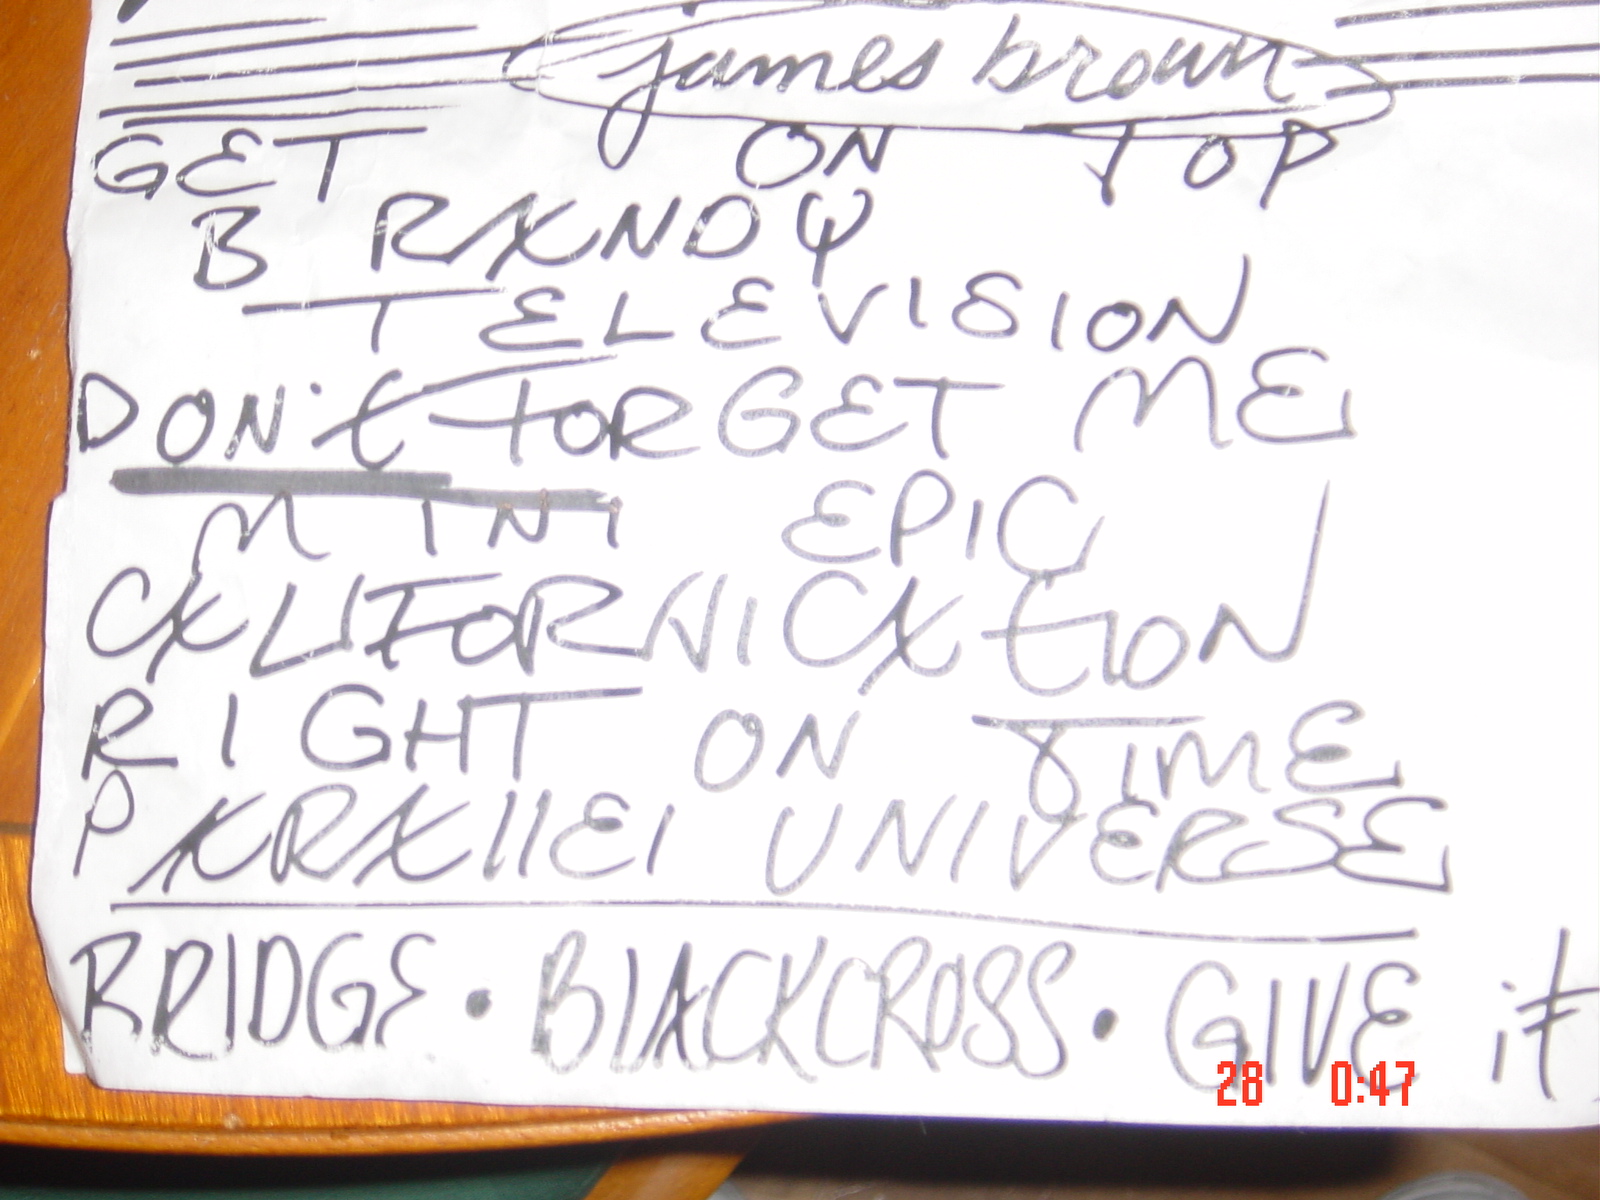 james brown
GET ON TOP
BRANDY
TELEVISION
DON't FORGET ME
MINI EPIC
CALIFORNICAtION
RIGHT ON TIME
PARAllEl UNIVERSE
BRIDGE • BlACKCROSS • GIVE it
28 0:47